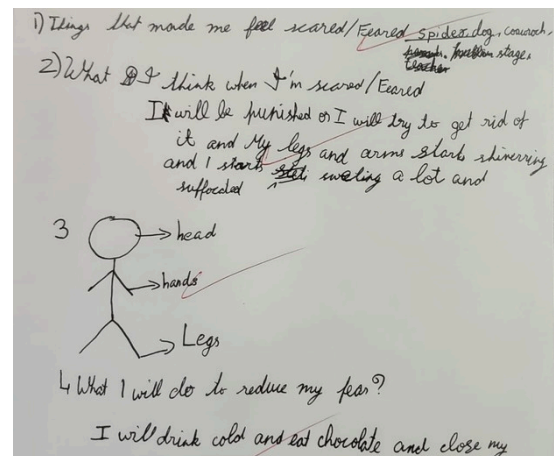 1) Things that made me feel scared/Feared spider, dog, cocroch,
stage,
teacher
2) What I think when I'm scared/Feared
I will be punished or I will try to get rid of
it and My legs and arms starts shinerring
and I starts sweting a lot and
suffocated
3
head
hands
Legs
4 What I will do to reduce my fear?
I will drink cold and eat chocolate and close my